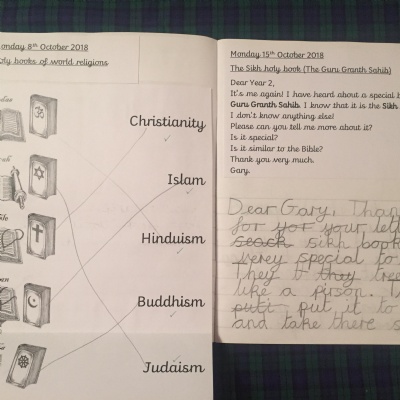 Monday 8th October 2018
Holy books of world religions
Christianity
Islam
Hinduism
Buddhism
Judaism
Monday 15th October 2018
The Sikh holy book (The Guru Granth Sahib)
Dear Year 2,
It's me again! I have heard about a special b
Guru Granth Sahib. I know that it is the Sikh
I don't know anything else!
Please can you tell me more about it?
Is it special?
Is it similar to the Bible?
Thank you very much.
Gary.
Dear Gary, Than
for yor your lett
seach sikh book
verey special to
They b they tree
like a pirson.
putt put it to
and take there s